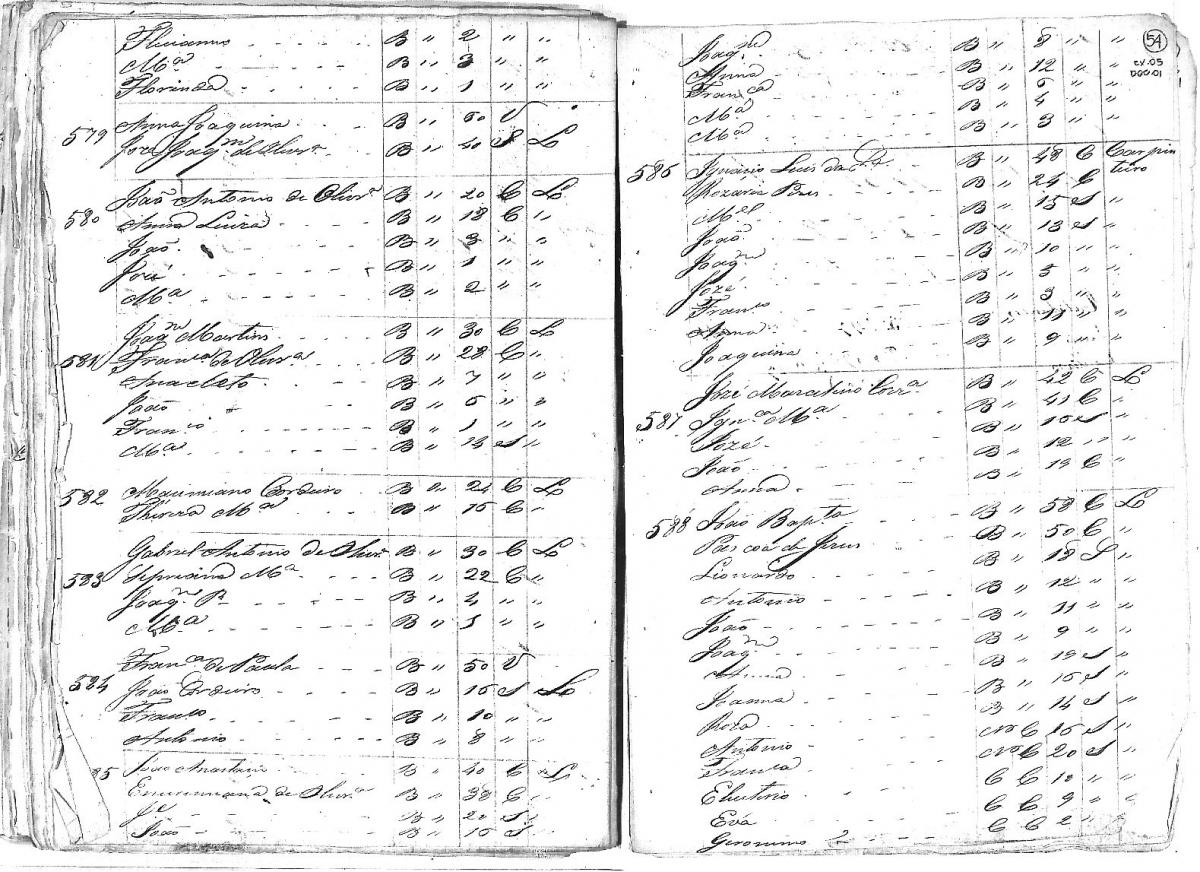 Flurianno B " 2 " "
Mª B " 3 " "
Florinda B " 1 " "
579 Anna Joaquina B " 60 V
José Joaqm de Olivrª B " 40 S L
580 João Antonio de Olivrª B " 20 C L
Anna Luiza B " 18 C "
João B " 3 " "
José B " 1 " "
Mª B " 2 " "
Joaqm Martins B " 30 C L
581 Francª de Olivrª B " 28 C "
Anacleto B " 7 " "
João B " 5 " "
Franco B " 1 " "
Mª B " 13 S "
582 Maximiano Cordeiro B " 24 C L
Thereza Mª B " 15 C "
Gabriel Antonio de Olivrª B " 30 C L
583 Mª B " 22 C "
Joaqm B " 4 " "
Mª B " 1 " "
Francª de Paula B " 50 V
584 João Cordeiro B " 16 S L
Franco B " 10 " "
Antonio B " 8 " "
85 João Anastacio B " 40 C L
de Olivrª B " 38 C
B " 20 S
João B " 16 S
54
CX.05
DOC.01
Joaqm B " 8 " "
Anna B " 12 " "
Francª B " 6 " "
Mª B " 4 " "
Mª B " 3 " "
586 Ignacio Luis da B " 48 C Carpin
teiro
Rozaria Pires B " 24 C
Mel B " 15 S "
João B " 13 S "
Joaqm B " 10 " "
José B " 5 " "
Franco B " 3 " "
Anna B " 11 " "
Joaquina B " 9 " "
José Marcelino Corrª B " 42 C L
587 Ignª Mª B " 41 C "
José B " 16 S "
João B " 12 " "
Anna B " 19 C "
588 João Bapta B " 58 C L
Pascoa de Jesus B " 50 C "
Lionardo B " 18 S "
Antonio B " 12 " "
João B " 11 " "
Joaqm B " 9 " "
Anna B " 19 S "
Joanna B " 16 S "
Roza B " 14 S "
Antonio No C 16 S "
Francª No C 20 S "
Elutirio C C 10 " "
Eva C C 9 " "
Geronimo C C 2 " "